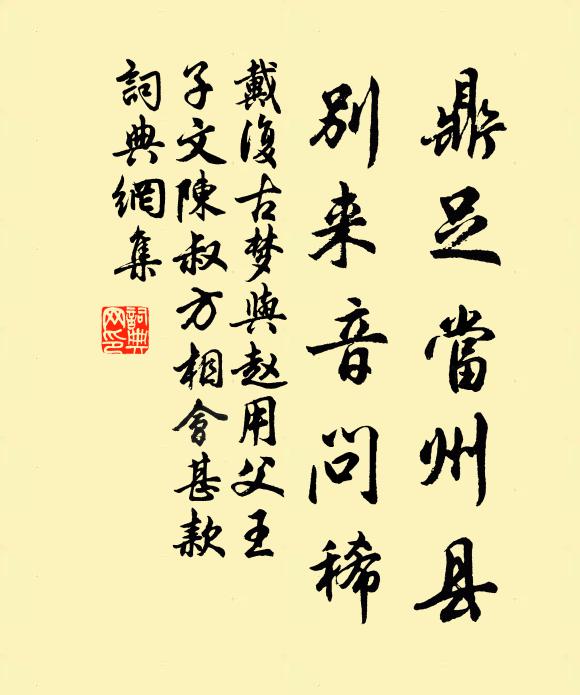 鼎足當州县
别来音问稀
戴復古梦與赵用父王
子文陳叔方相會甚款
詞典網集
詞典网印